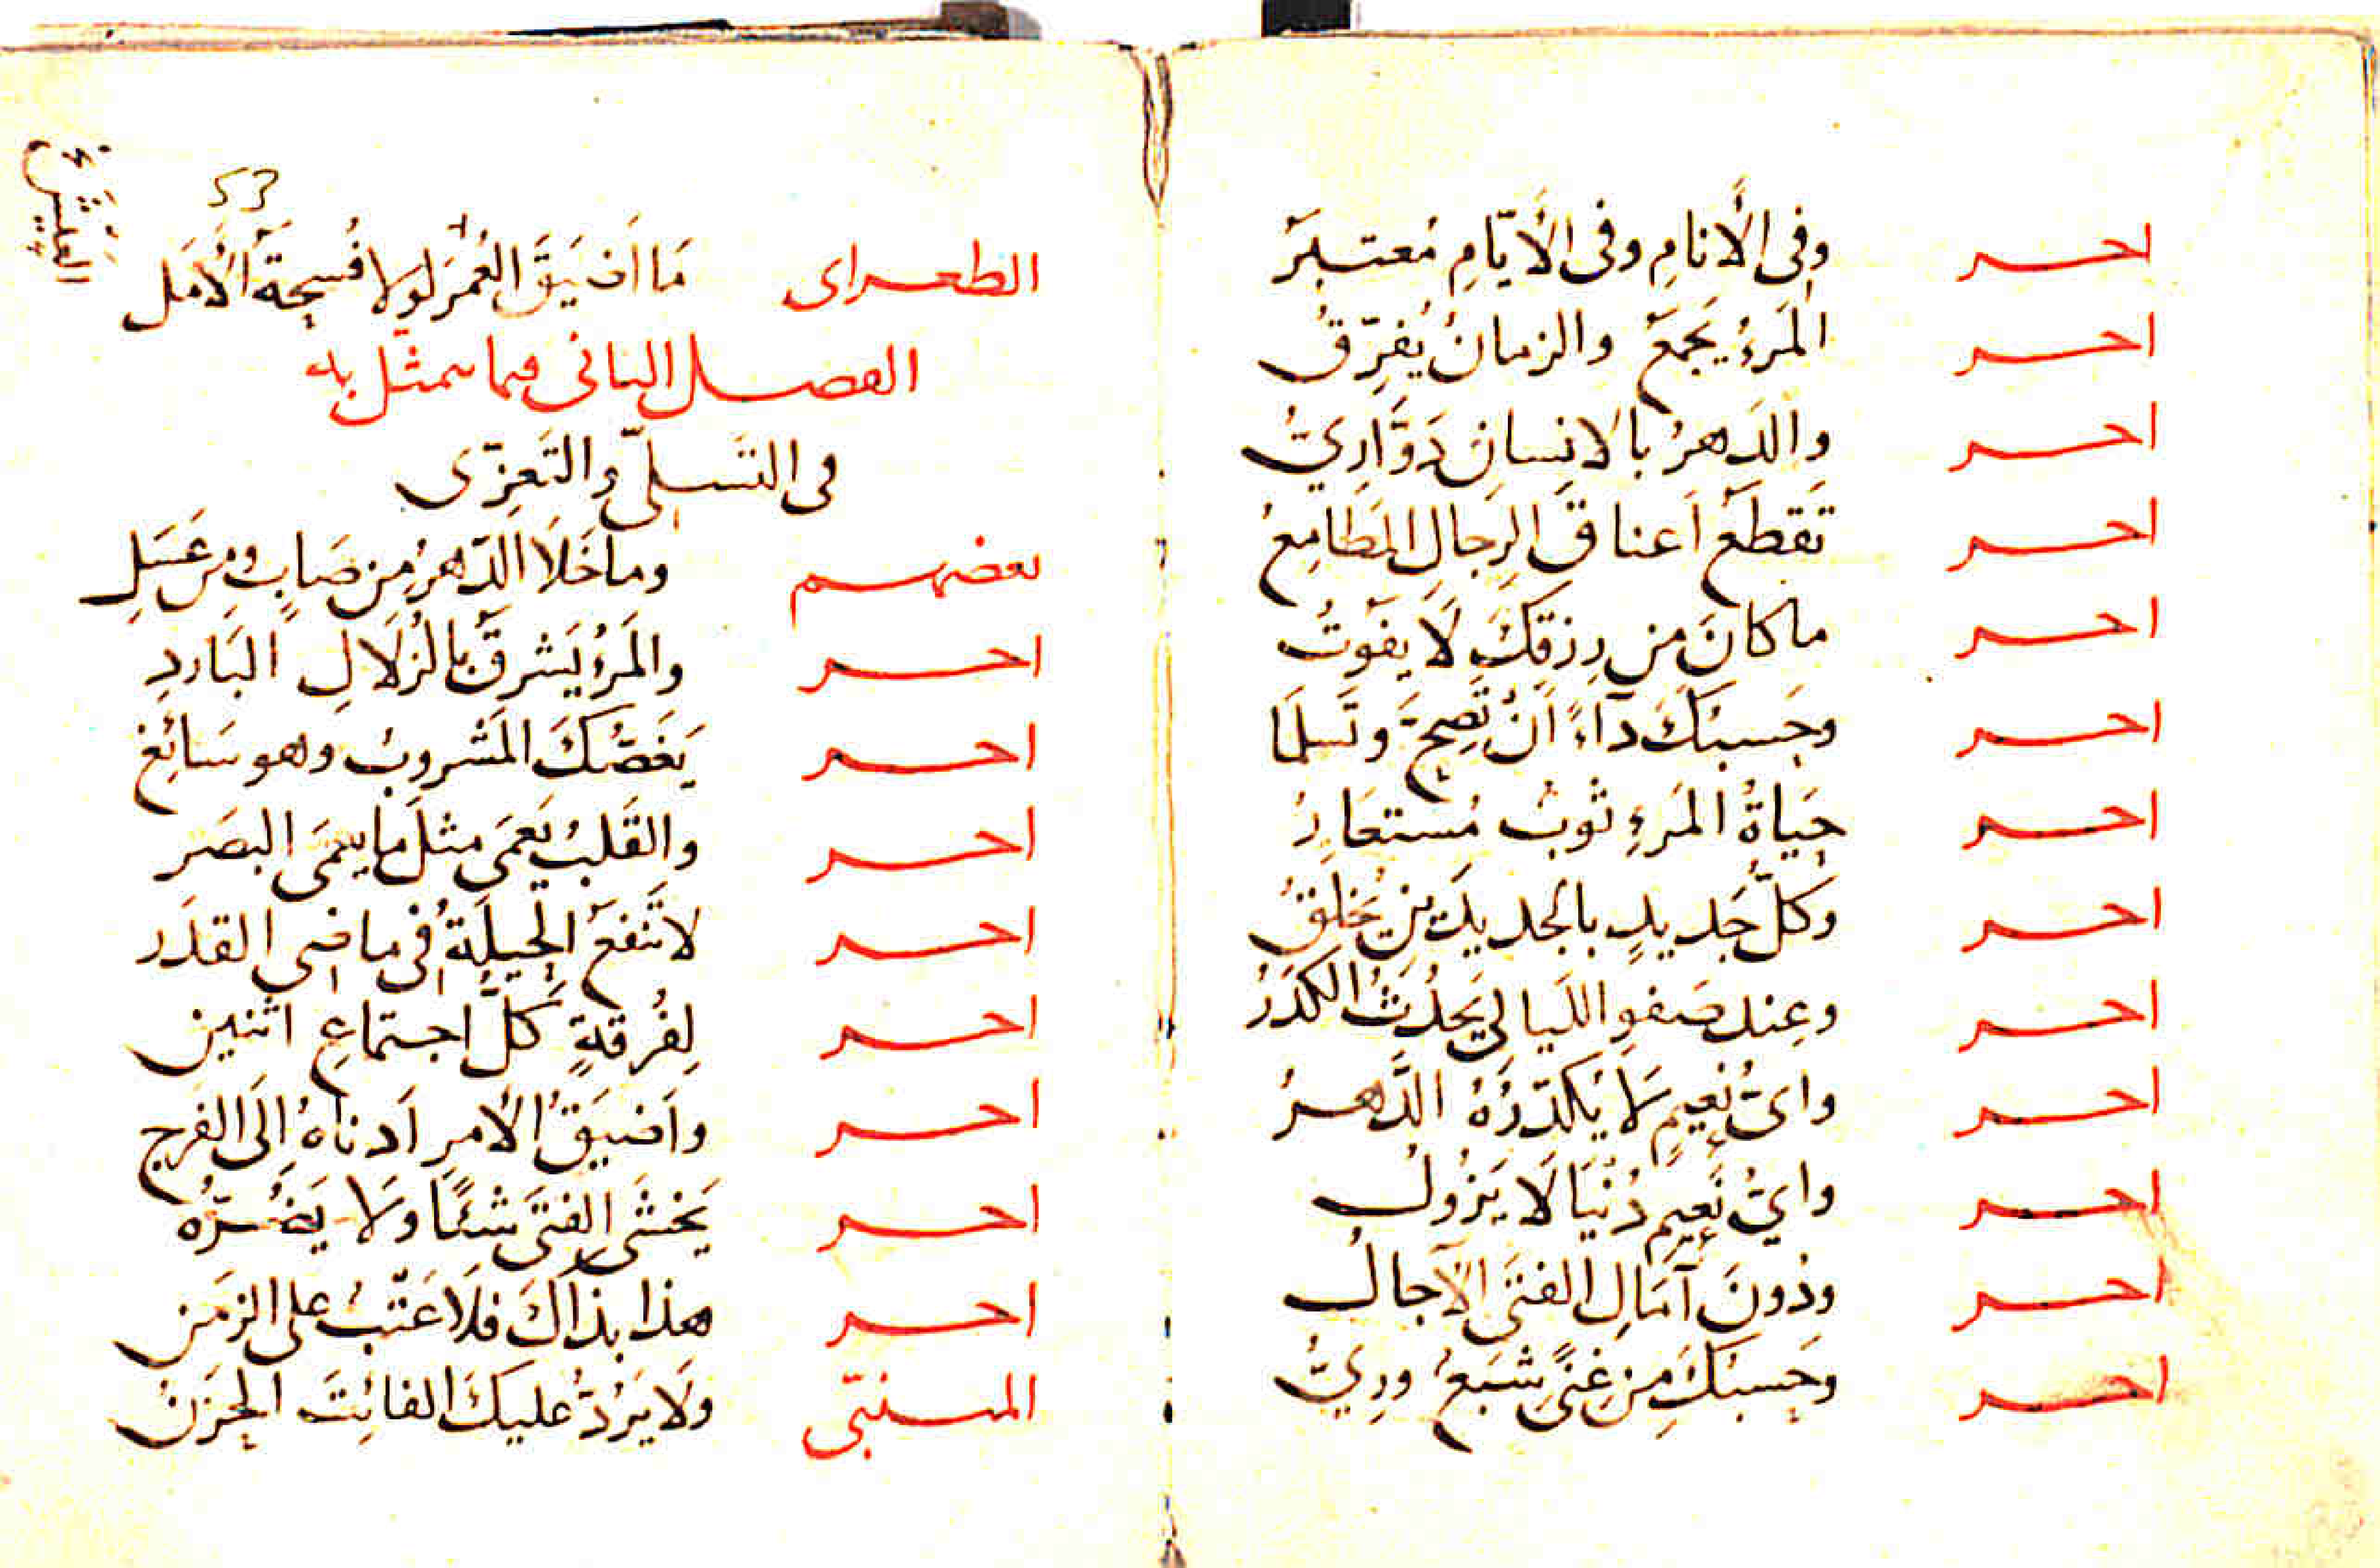 احــر وفِى الأنامِ وفى الأيّامِ مُعتبَرُ
احــر المَرءُ يَجمَعُ والزمانُ يُفرِّقُ
احــر والدَهرُ بالانِسانِ دَوَّارِيُّ
احــر تَقطَعُ اَعناقَ الرِجالِ المَطَامِعُ
احــر ما كانَ مِن رِزقِكَ لَا يفَوتُ
احــر وحَسبُكَ دآءً اَنْ تَصِحَّ وتَسلَمَا
احــر حَياةُ المَرءِ ثَوبٌ مُستعَارُ
احــر وكلُّ جَديدٍ بالجديدَينِ يَخلِقُ
احــر وعِند صَفوِ اللَيالى يَحدُثُ الكَدَرُ
احــر واىُّ نَعِيمٍ لَا يُكدّرُهُ الدَّهرُ
احــر واىُّ نَعِيمِ دُنْيَا لَا يَزُولُ
احــر ودُونَ آمَالِ الفتَى الآجالُ
احــر وحَسبُكَ مِن غِنىً شِبَعٌ ورِىُّ
53
الطعراى مَا اَضيَقَ العُمْرَ لولا فُسحَةُ الأمَلِ
الفصل الثانى فيما يتمثّل به
فى التَسلِّى والتَعزِّى
بعضهم وما خَلَا الدّهرُ مِن صَابٍ ومِن عَسَلِ
احــر والمَرءُ يَشرقُ بالزُلَالِ البَاردِ
احــر يَغَصُّكَ المَشروبُ وهو سَائِغ
احــر والقَلبُ يَعمَى مثلَ ما يعمَى البصَر
احــر لا تَنفَعُ الحِيلَةُ فى ماضِى القدَر
احــر لِفُرقةٍ كلُّ اجتماعِ اثنين
احــر واَضيَقُ الأمرِ اَدناهُ اِلَى الفَرج
احــر يَخشَى الفتَى شَئًا وَلَا يَضُرّهُ
احــر هذا بذاكَ فلَا عَتْبٌ على الزمَنِ
المتنبّى ولَا يَرُدُّ عليكَ الفائِتَ الحَزَنُ